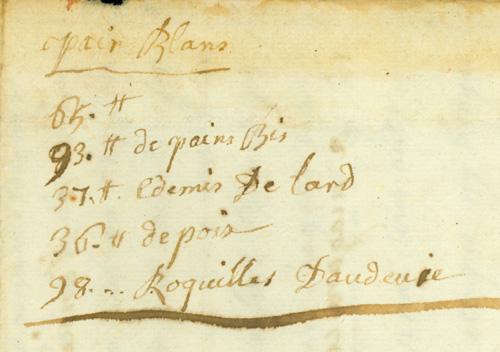 pain Blans
65. ₶
93. ₶ de pains Bis
37. ₶. Edemis De lard
36. ₶ de pois
98... Roquilles Daudevie